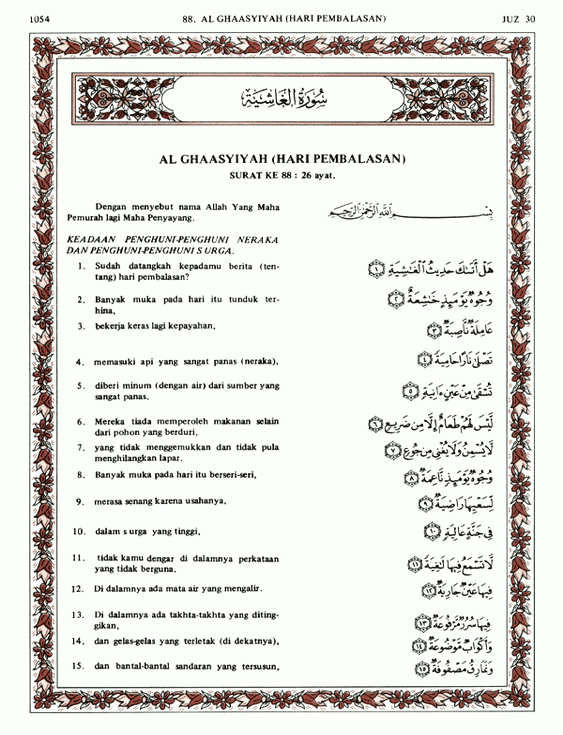 1054
88. AL GHAASYIYAH (HARI PEMBALASAN)
JUZ 30
سُورَةُ الْغَاشِيَةِ
AL GHAASYIYAH (HARI PEMBALASAN)
SURAT KE 88 : 26 ayat.
Dengan menyebut nama Allah Yang Maha
Pemurah lagi Maha Penyayang.
بِسْمِ اللَّهِ الرَّحْمَٰنِ الرَّحِيمِ
KEADAAN PENGHUNI-PENGHUNI NERAKA
DAN PENGHUNI-PENGHUNI SURGA.
1. Sudah datangkah kepadamu berita (ten-
tang) hari pembalasan?
هَلْ أَتَىٰكَ حَدِيثُ الْغَاشِيَةِ ١
2. Banyak muka pada hari itu tunduk ter-
hina,
وُجُوهٌ يَوْمَئِذٍ خَاشِعَةٌ ٢
3. bekerja keras lagi kepayahan,
عَامِلَةٌ نَاصِبَةٌ ٣
4. memasuki api yang sangat panas (neraka),
تَصْلَىٰ نَارًا حَامِيَةً ٤
5. diberi minum (dengan air) dari sumber yang
sangat panas.
تُسْقَىٰ مِنْ عَيْنٍ ءَانِيَةٍ ٥
6. Mereka tiada memperoleh makanan selain
dari pohon yang berduri,
لَيْسَ لَهُمْ طَعَامٌ إِلَّا مِنْ ضَرِيعٍ ٦
7. yang tidak menggemukkan dan tidak pula
menghilangkan lapar.
لَا يُسْمِنُ وَلَا يُغْنِي مِنْ جُوعٍ ٧
8. Banyak muka pada hari itu berseri-seri,
وُجُوهٌ يَوْمَئِذٍ نَاعِمَةٌ ٨
9. merasa senang karena usahanya,
لِسَعْيِهَا رَاضِيَةٌ ٩
10. dalam surga yang tinggi,
فِي جَنَّةٍ عَالِيَةٍ ١٠
11. tidak kamu dengar di dalamnya perkataan
yang tidak berguna.
لَا تَسْمَعُ فِيهَا لَاغِيَةً ١١
12. Di dalamnya ada mata air yang mengalir.
فِيهَا عَيْنٌ جَارِيَةٌ ١٢
13. Di dalamnya ada takhta-takhta yang diting-
gikan,
فِيهَا سُرُرٌ مَرْفُوعَةٌ ١٣
14. dan gelas-gelas yang terletak (di dekatnya),
وَأَكْوَابٌ مَوْضُوعَةٌ ١٤
15. dan bantal-bantal sandaran yang tersusun,
وَنَمَارِقُ مَصْفُوفَةٌ ١٥